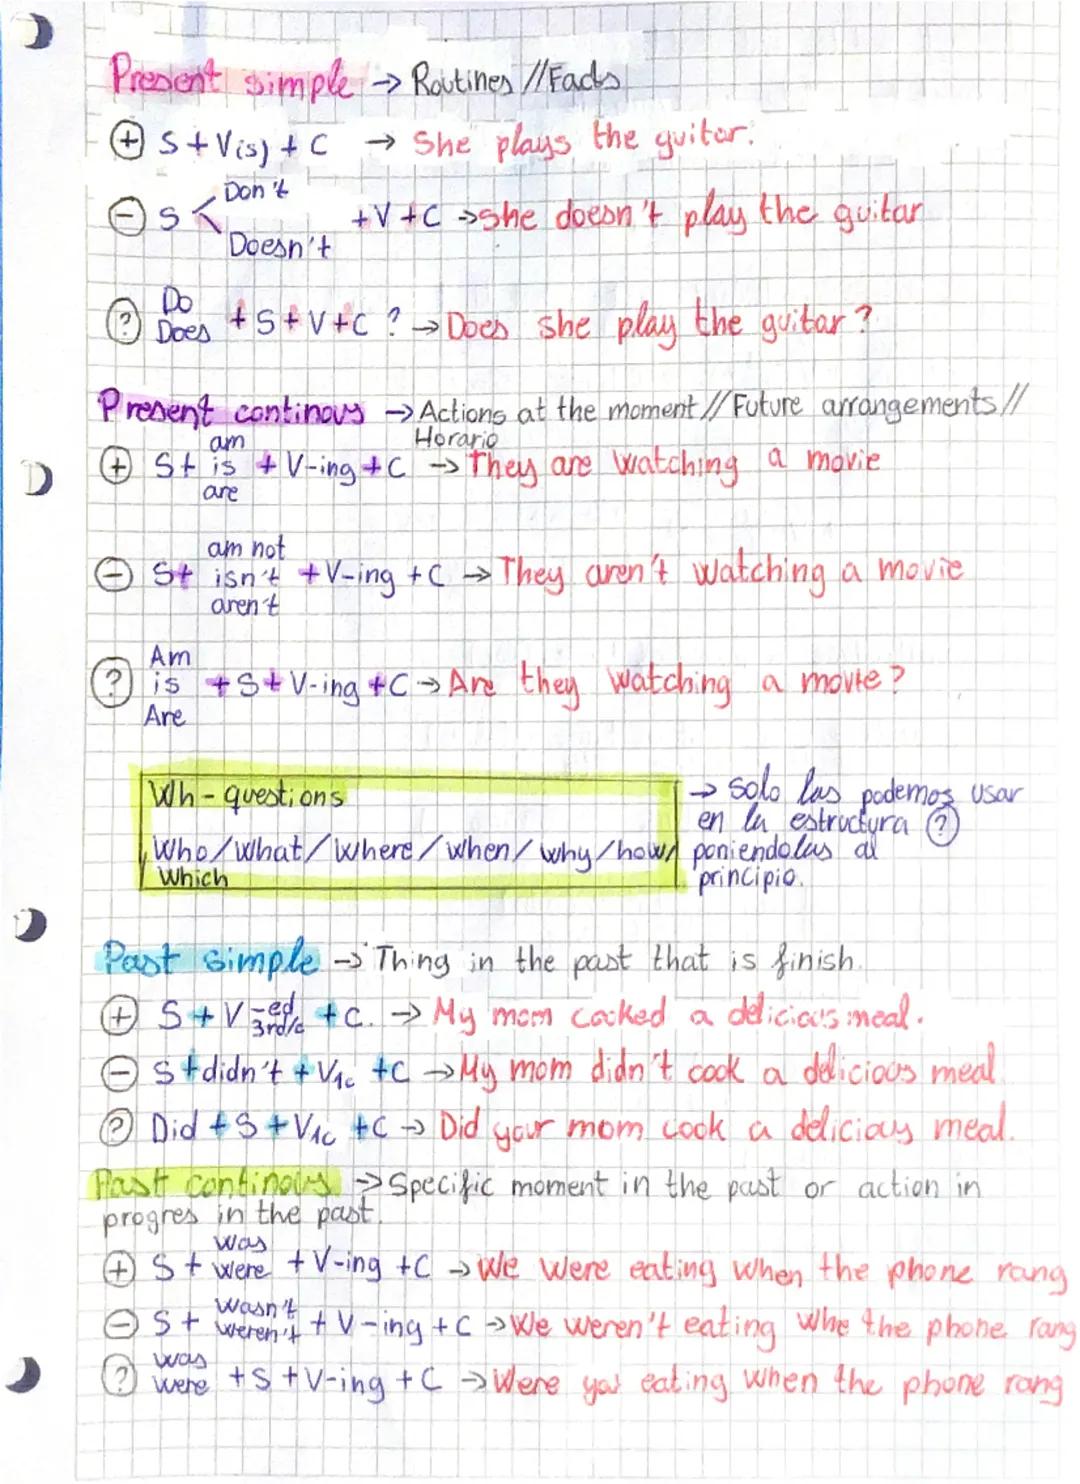 Present simple → Routines // Facts
+ S + V(s) + C → She plays the guitar.
Don't
- S < + V + C → She doesn't play the guitar
Doesn't
Do
? Does + S + V + C ? → Does she play the guitar ?
Present continous → Actions at the moment // Future arrangements //
Horario
am
+ S + is + V-ing + C → They are watching a movie
are
am not
- S + isn't + V-ing + C → They aren't watching a movie
aren't
Am
? is + S + V-ing + C → Are they watching a movie ?
Are
Wh - questions
Who / what / where / when / why / how /
which
→ solo las podemos usar
en la estructura ?
poniendolas al
principio.
Past simple → Thing in the past that is finish.
+ S + V -ed + C. → My mom cooked a delicious meal.
3rd/c
- S + didn't + V1c + C → My mom didn't cook a delicious meal
? Did + S + V1c + C → Did your mom cook a delicious meal.
Past continous → Specific moment in the past or action in
progres in the past.
was
+ S + were + V-ing + C → We were eating when the phone rang
wasn't
- S + weren't + V-ing + C → We weren't eating whe the phone rang
was
? were + S + V-ing + C → Were you eating when the phone rang